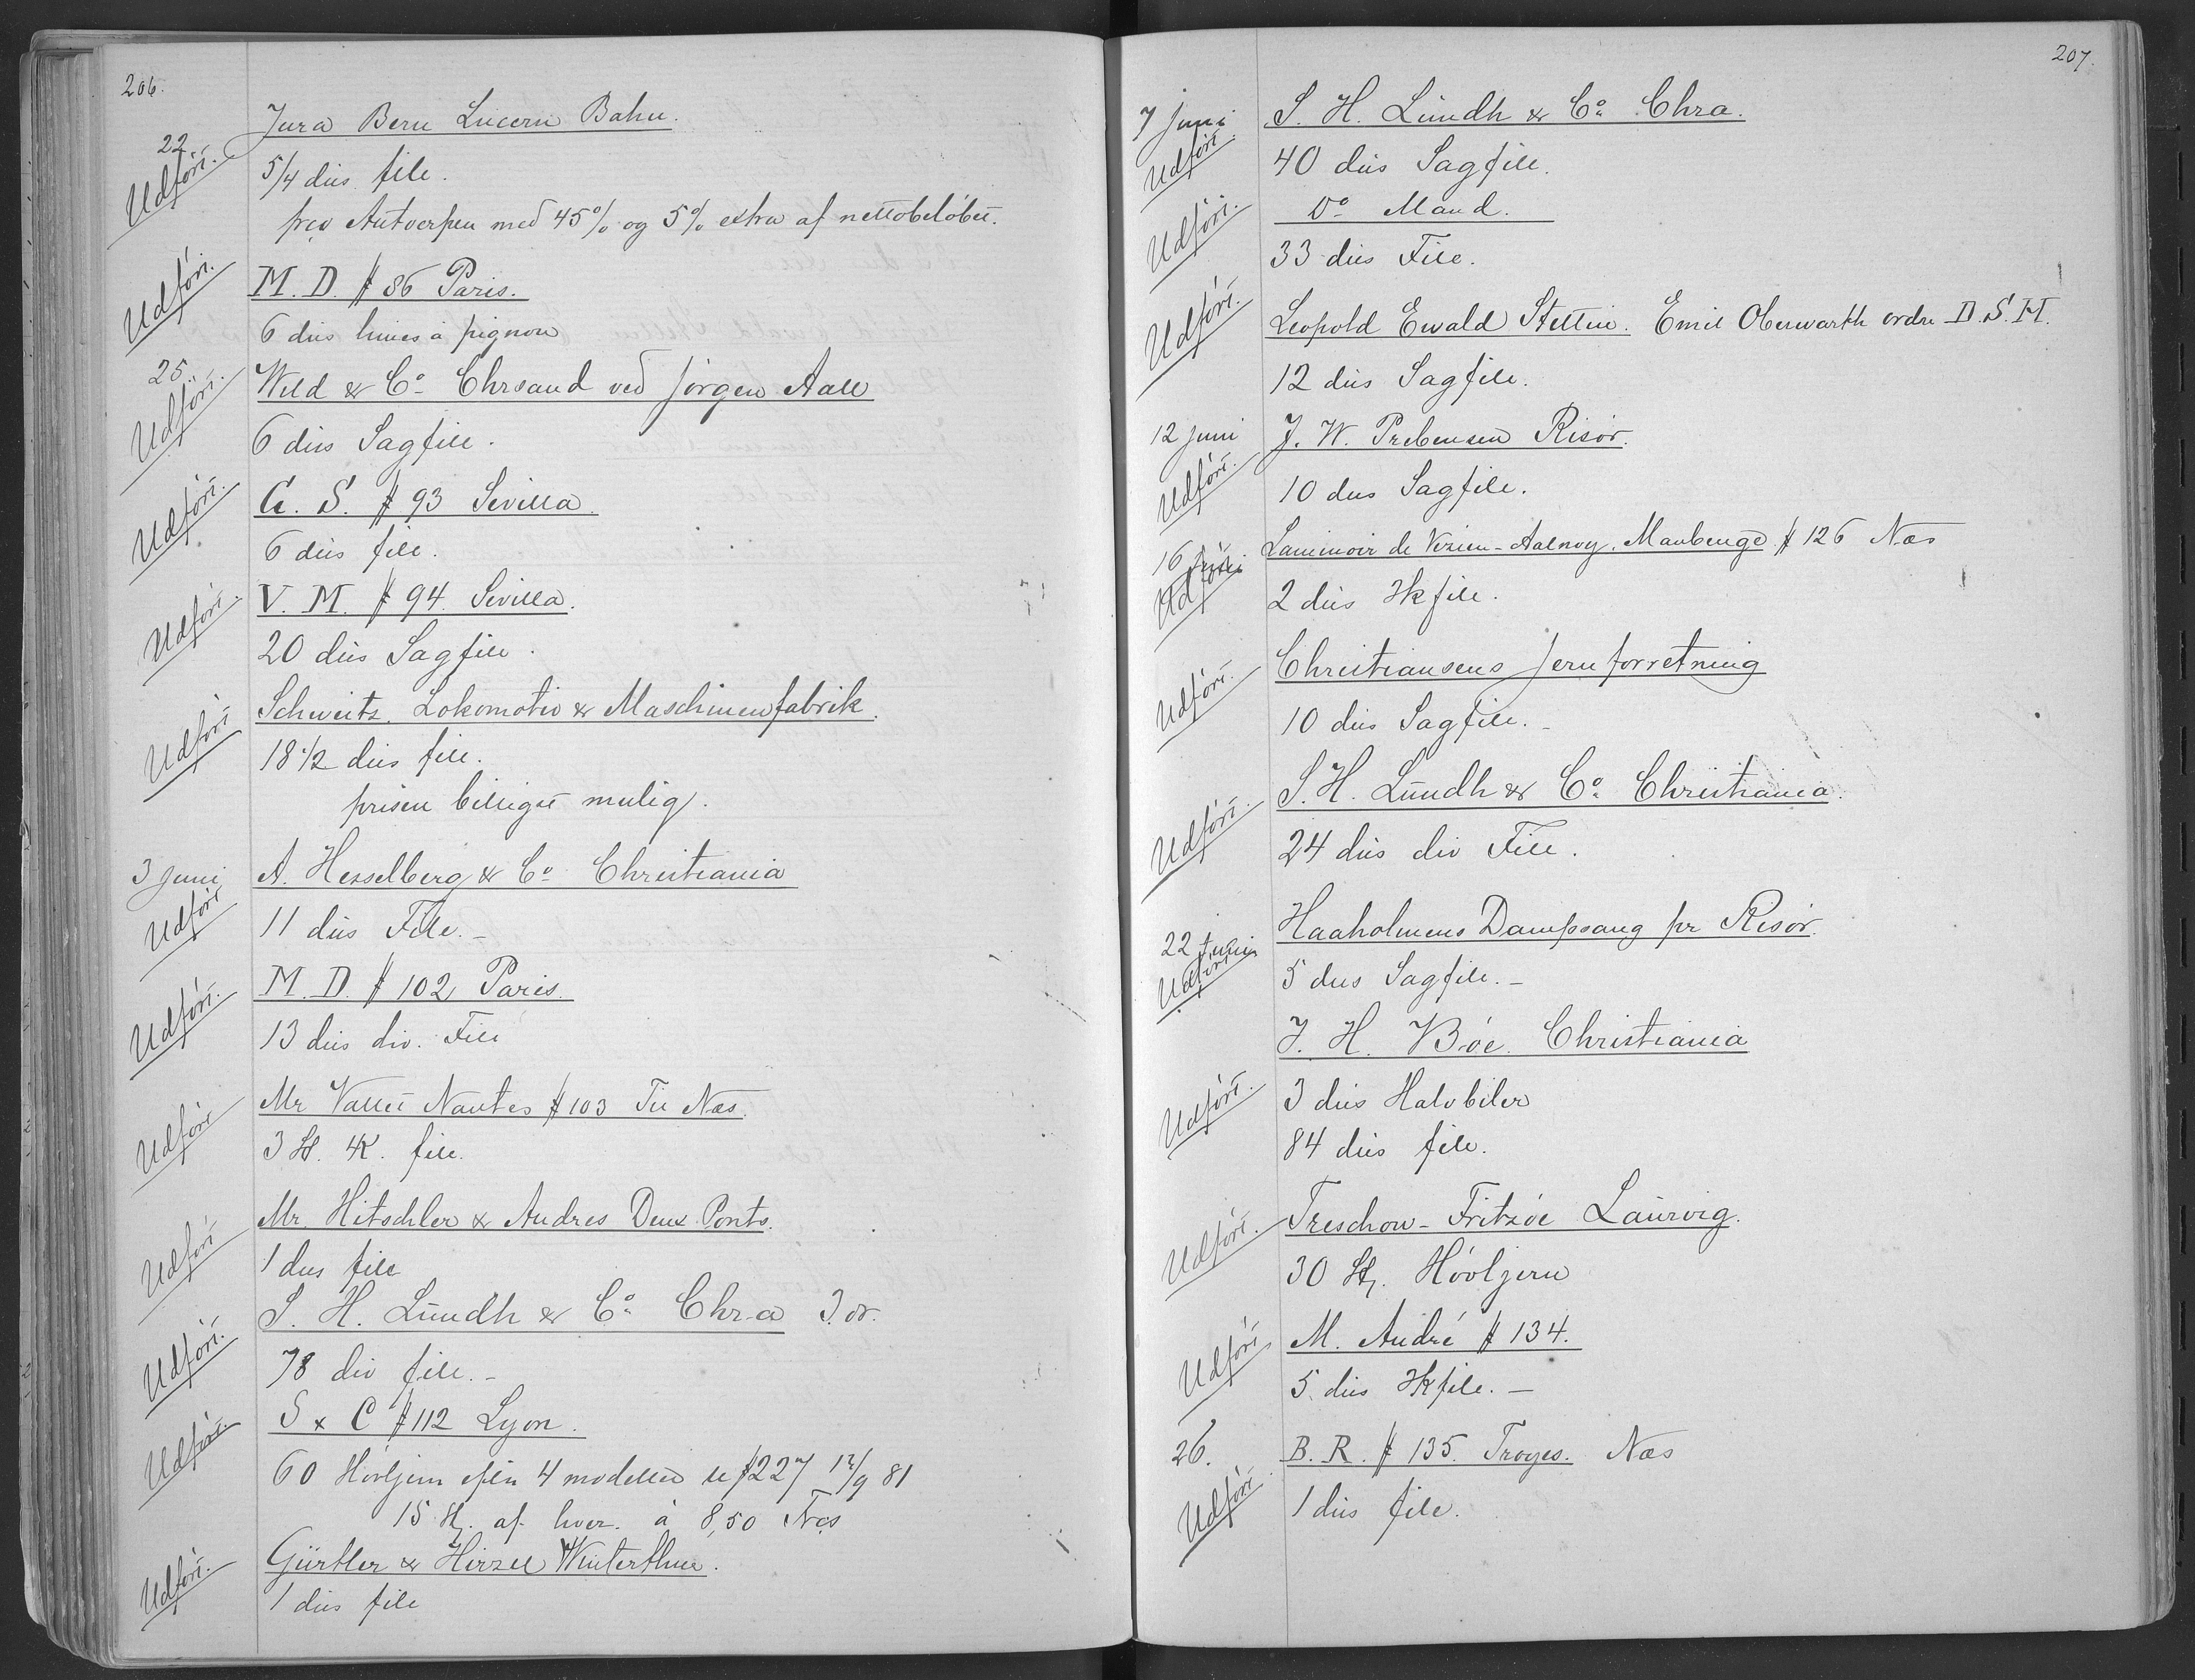 206.
Jura Bern Lucern Bahn.
22.
Udført.
5/4 dus file.
frco Antverpen med 45% og 5% extra af nettobeløbet.
Udført.
M. D. # 86 Paris.
6 dus limes à pignon
25.
Udført.
Weld & Co Chrsand ved Jørgen Aall
6 dus Sagfile.
Udført.
G. S. # 93 Sevilla.
6 dus file.
Udført.
V. M. # 94 Sevilla.
20 dus Sagfile.
Udført
Schweitz. Lokomotiv & Maschinenfabrik.
18 1/2 dus file.
prisen billigst mulig.
3 Juni
Udført
A. Hesselberg & Co Christiania
11 dus File.-
Udført.
M. D. # 102 Paris.
13 dus div. File
Udført
Mr Vallet Nantes # 103 Til Næs.
3 file.
Udført
Mr. Hitschler & Andres Deux-Ponts.
1 dus file
Udført.
S. H. Lundh & Co Chra
78 div file.-
Udført.
S & C # 112 Lyon.
60 Høvljern efter 4 modeller se # 227 12/9 81
15 St. af hver. à 8,50 Frcs
Udført.
Gürtler & Hirzel Winterthur.
1 dus file
207.
7 Juni
Udført.
S. H. Lundh & Co Chra.
40 dus Sagfile.
Udført.
Do Mand.
33 dus File.
Udført.
Leopold Ewald Stettin. Emil Oberwarth ordre D. S. H.
12 dus Sagfile.
12 Juni
Udført.
J. W. Prebensen Risør.
10 dus Sagfile.
16 Juni
Udført
Laminoir de Vezin-Aulnoy. Maubeuge # 126 Næs
2 dus Hkfile.
Udført.
Christiansens Jernforretning
10 dus Sagfile.-
Udført.
S. H. Lundh & Co Christiania.
24 dus div File.
22 Juni
Udført
Haaholmens Dampsaug pr Risør.
5 dus Sagfile.-
J. H. Bøe. Christiania
Udført.
3 dus Halvbiler
84 dus file.
Udført.
Treschow-Fritzøe Laurvig.
30 St. Høvljern
Udført
M. André # 134.
5 dus Hkfile.-
26.
Udført
B. R. # 135 Troyes. Næs
1 dus file.